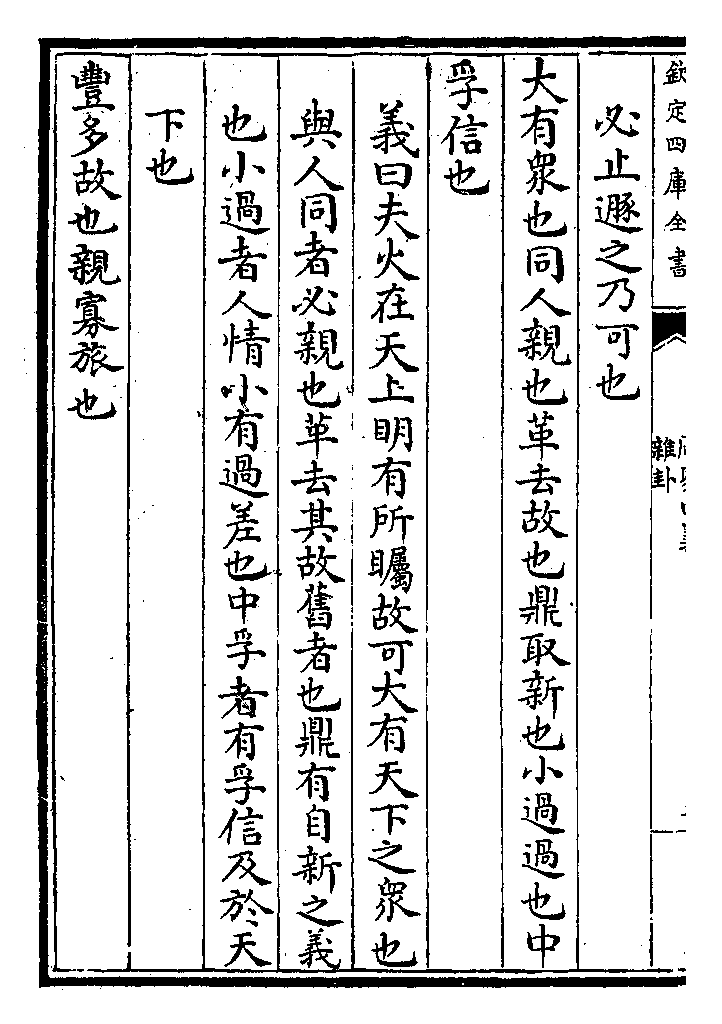 欽定四庫全書
雜卦
必止遯之乃可也
大有衆也同人親也革去故也鼎取新也小過過也中
孚信也
義曰夫火在天上明有所矚故可大有天下之衆也
與人同者必親也革去其故舊者也鼎有自新之義
也小過者人情小有過差也中孚者有孚信及於天
下也
豐多故也親寡旅也